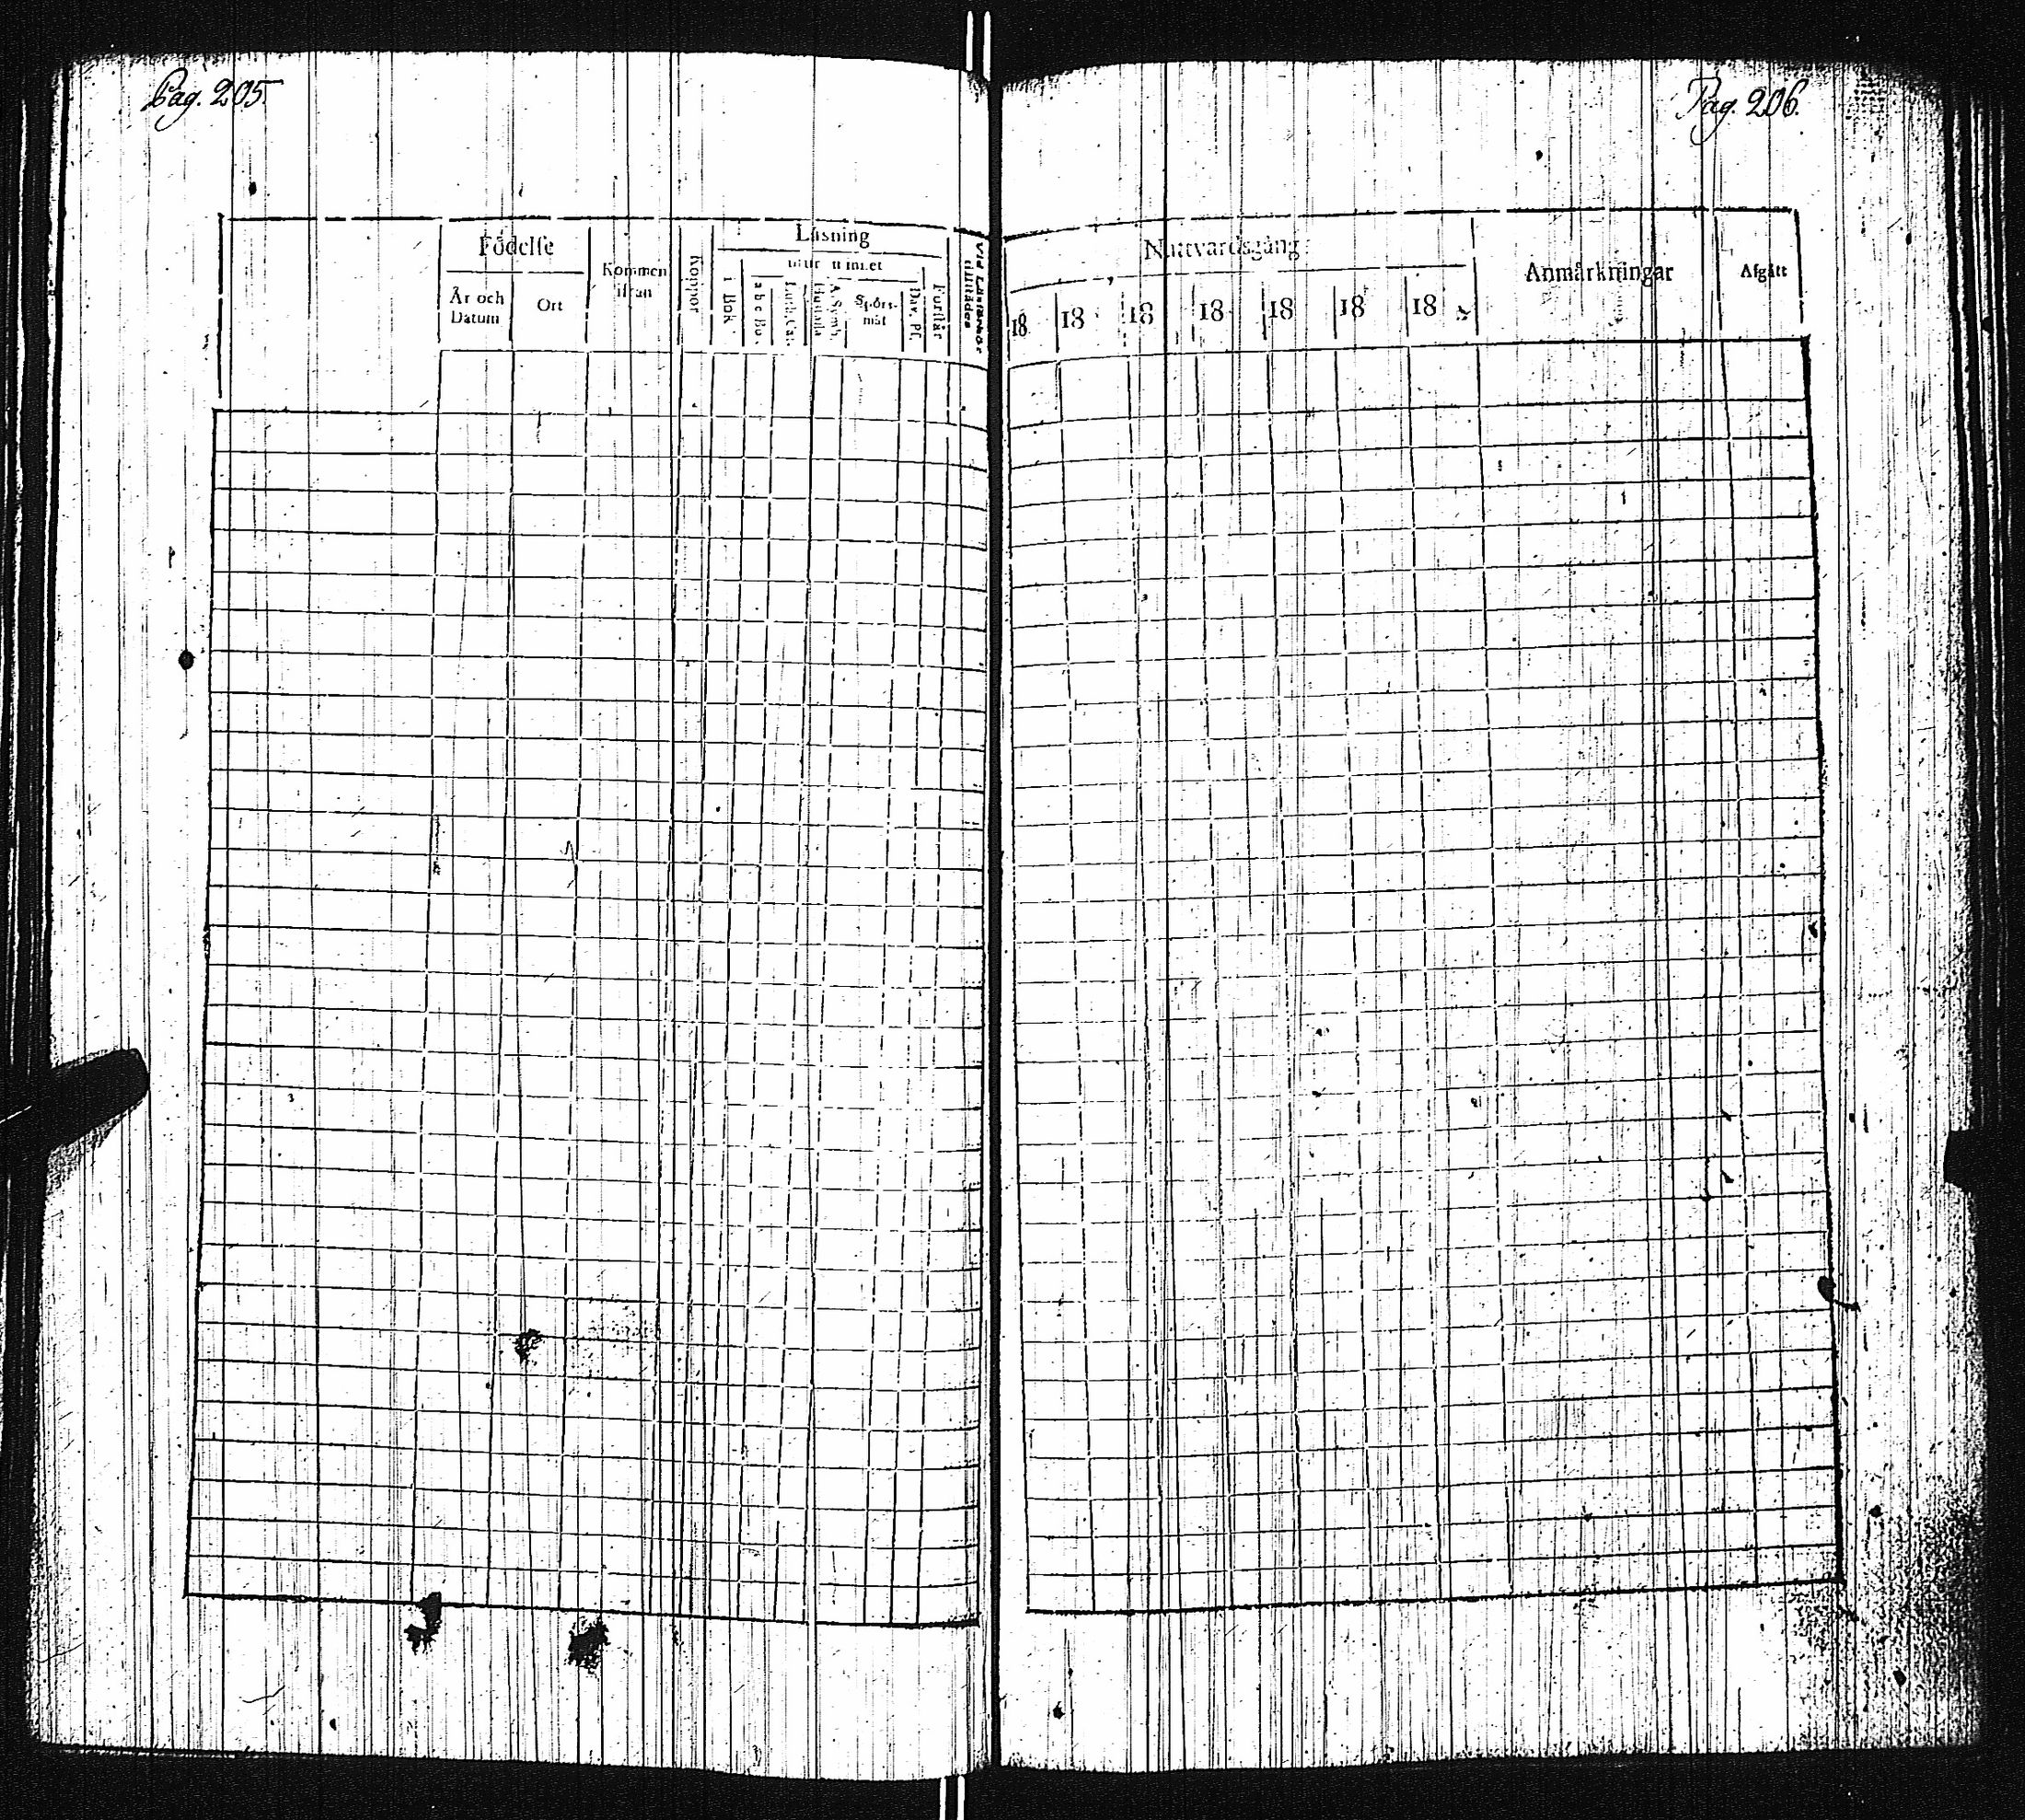 Pag. 205.
Födelse
År och Datum
Ort
Kommen ifrån
Koppor
Läsning
i Bok
utur minnet
a b c Bo.
Luth. Cat.
Hustafla
A. Symb.
Spörs-mål
Dav. Ps.
Förstår
Vid Läsförhör tillstädes
Pag. 206.
Nattvardsgång
18 18 18 18 18 18 18
Anmärkningar
Afgått